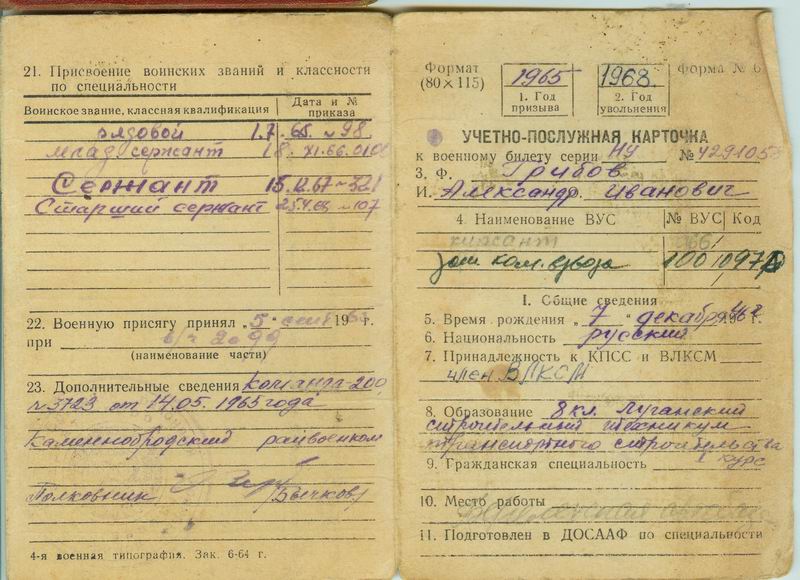 21. Присвоение воинских званий и классности
по специальности
Воинское звание, классная квалификация
Дата и №
приказа
рядовой 1.7. 65. №98
млад сержант 18. XI.66.
Сержант 15.12.67-321
Старший сержант 25.4.68 -107
22. Военную присягу принял „5“ сент 1965 г.
при в/ч 2099
(наименование части)
23. Дополнительные сведения команда-200
№3723 от 14.05. 1965 года
Каменнобродский райвоенком
Полковник /Бычков/
4-я военная типография. Зак. 6-64 г.
Формат
(80×115)
1965
1. Год
призыва
1968.
2. Год
увольнения
Форма № 6
УЧЕТНО-ПОСЛУЖНАЯ КАРТОЧКА
к военному билету серии НУ №
3. Ф. Грибов
И. Александр Иванович
4. Наименование ВУС
№ ВУС
Код
курсант
зам. ком. взвода 100 1097
I. Общие сведения
5. Время рождения „7“ декабря г.
6. Национальность русский
7. Принадлежность к КПСС и ВЛКСМ
член ВЛКСМ
8. Образование 8 кл. Луганский
строительный техникум
транспортного строительства
I курс
9. Гражданская специальность
10. Место работы
11. Подготовлен в ДОСААФ по специальности